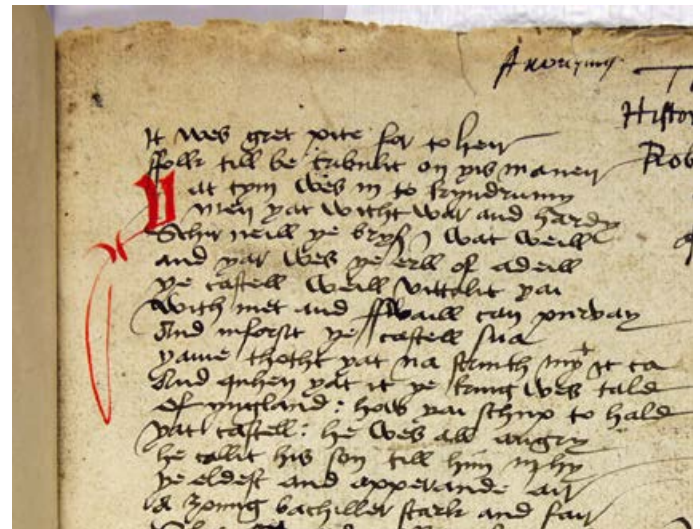 Anonymus
Histor
Rob
It wes gret pite for to heir
ffolk till be trubulit on yis maneir
Yat tym wes in to kyndrumy
Men yat wicht war and hardy
Schir neill ye bryß I wat weill
and yar wes ye erll of adeill
ye castell weill vittalit yai
With met and ffwaill can purvay
And inforsit ye castell sua
yame thocht yat na strinth mycht it ta
And quhen yat it ye king wes tald
Of yngland : how yai schup to hald
yat castell : he wes all angry
he callit his son till him in hy
ye eldest and apperande air
A zoung bachiller stark and fair